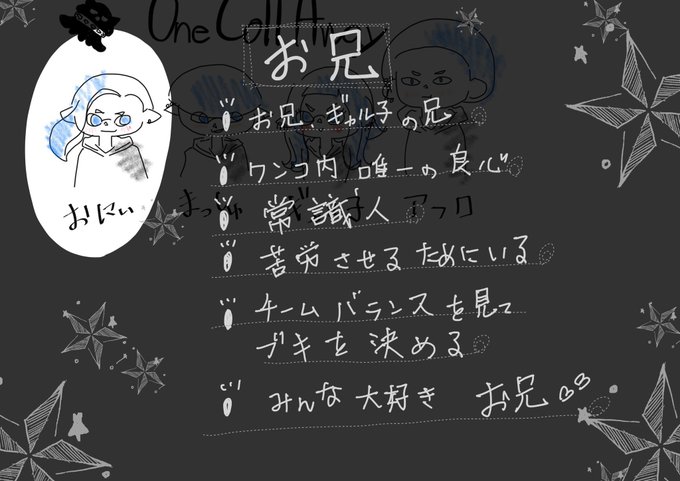 One Call Away
お兄
お兄、ギャル子の兄
ワンコ内 唯一の良心
常識人
苦労させるためにいる
チームバランスを見て
ブキを決める
みんな大好き お兄♡♡
おにい
まっちゅ
アフロ